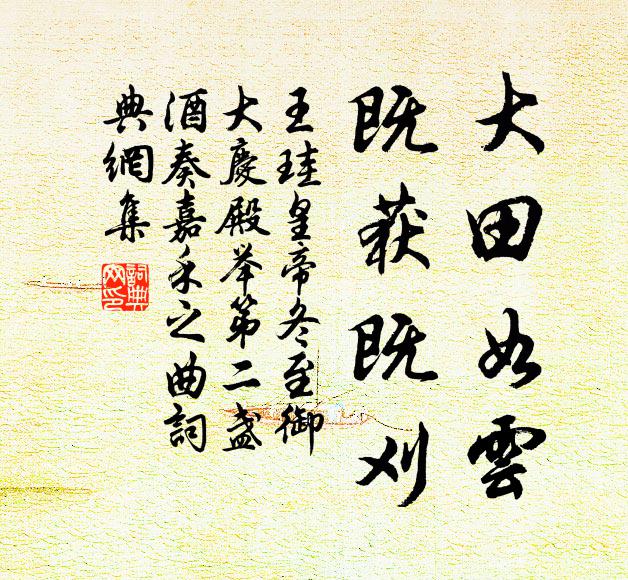 大田如雲
既获既刈
王珪皇帝冬至御
大慶殿举第二盏
酒奏嘉禾之曲詞
典網集
詞典
网印